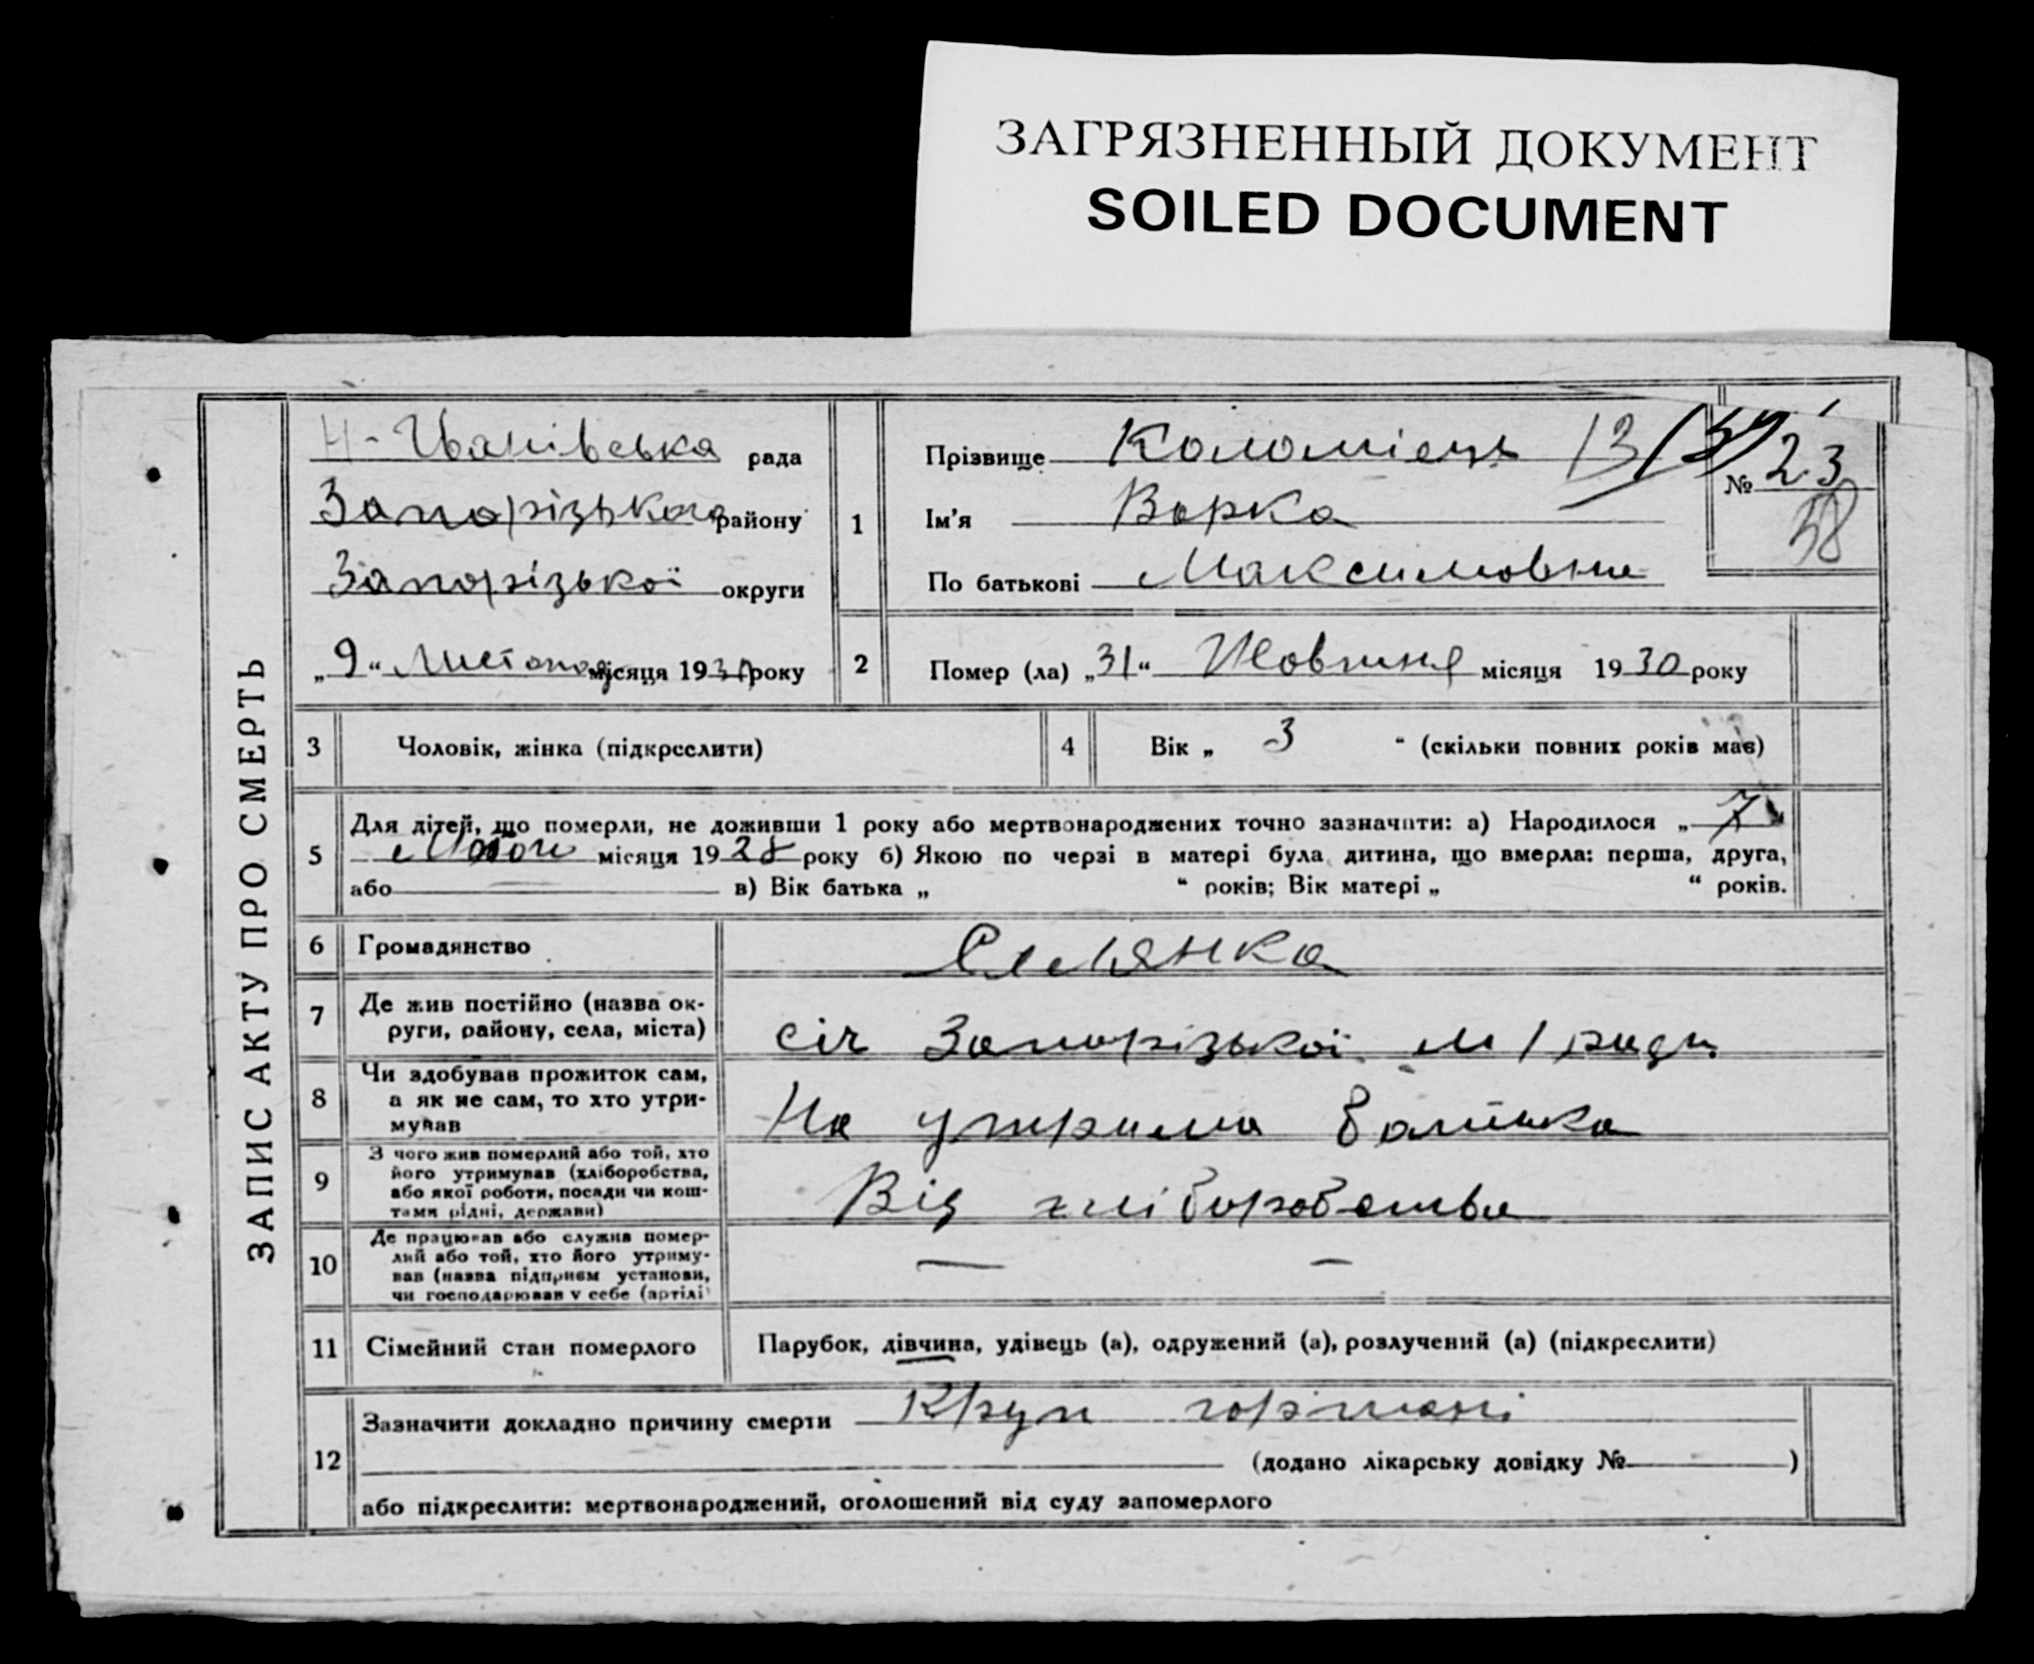 ЗАГРЯЗНЕННЫЙ ДОКУМЕНТ
SOILED DOCUMENT
ЗАПИС АКТУ ПРО СМЕРТЬ
Н-Іванівська рада
Запорізького району
Запорізької округи
„9“ Листопад місяця 1930 року
1
Прізвище Коломієць 13
Ім'я Варка
По батькові Максимовна
№ 23
58
2
Помер (ла) „31“ Жовтня місяця 1930 року
3 Чоловік, жінка (підкреслити)
4 Вік „ 3 “ (скільки повних років мав)
5
Для дітей, що померли, не доживши 1 року або мертвонароджених точно зазначити: а) Народилося „ 7 “
місяця 1928 року б) Якою по черзі в матері була дитина, що вмерла: перша, друга,
або в) Вік батька „ “ років; Вік матері „ “ років.
6 Громадянство Селянка
7 Де жив постійно (назва ок-
руги, району, села, міста)
січ Запорізької м/ради
8 Чи здобував прожиток сам,
а як не сам, то хто утри-
мував
На утрима батька
9 З чого жив померлий або той, хто
його утримував (хліборобства,
або якої роботи, посади чи кош-
тами рідні, держави)
Від хліборобства
10 Де працював або служив помер-
лий або той, хто його утриму-
вав (назва підприєм установи,
чи господарював у себе (артілі)
— —
11 Сімейний стан померлого Парубок, дівчина, удівець (а), одружений (а), розлучений (а) (підкреслити)
12
Зазначити докладно причину смерти Круп гортані
(додано лікарську довідку № )
або підкреслити: мертвонароджений, оголошений від суду запомерлого